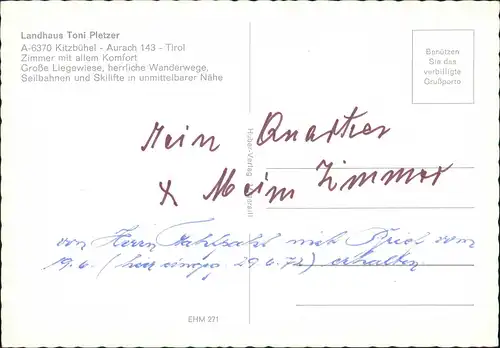 Landhaus Toni Pletzer
A-6370 Kitzbühel - Aurach 143 - Tirol
Zimmer mit allem Komfort
Große Liegewiese, herrliche Wanderwege,
Seilbahnen und Skilifte in unmittelbarer Nähe
Benützen
Sie das
verbilligte
Grußporto
Mein Quartier
x Mein Zimmer
von Herrn mit Brief vom
19.6. (hier eingeg. 29.6.72) erhalten
Huber-Verlag
EHM 271